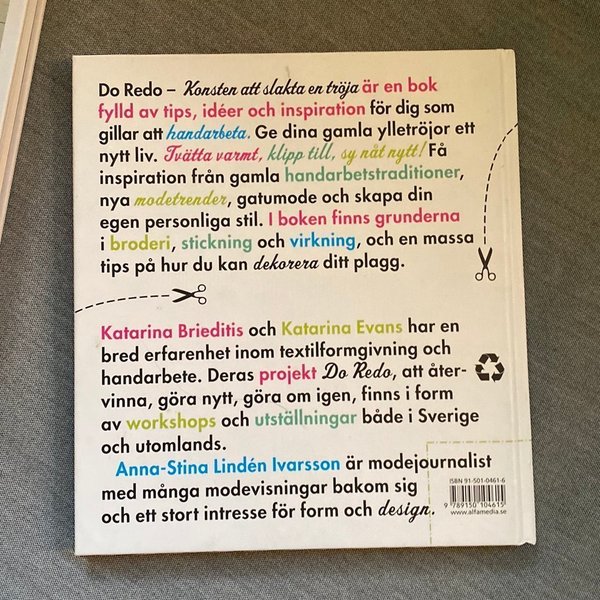 Do Redo – Konsten att slakta en tröja är en bok
fylld av tips, idéer och inspiration för dig som
gillar att handarbeta. Ge dina gamla ylletröjor ett
nytt liv. Tvätta varmt, klipp till, sy nåt nytt! Få
inspiration från gamla handarbetstraditioner,
nya modetrender, gatumode och skapa din
egen personliga stil. I boken finns grunderna
i broderi, stickning och virkning, och en massa
tips på hur du kan dekorera ditt plagg.
Katarina Brieditis och Katarina Evans har en
bred erfarenhet inom textilformgivning och
handarbete. Deras projekt Do Redo, att åter-
vinna, göra nytt, göra om igen, finns i form
av workshops och utställningar både i Sverige
och utomlands.
Anna-Stina Lindén Ivarsson är modejournalist
med många modevisningar bakom sig
och ett stort intresse för form och design.
ISBN 91-501-0461-6
9 789150 104615
www.alfamedia.se